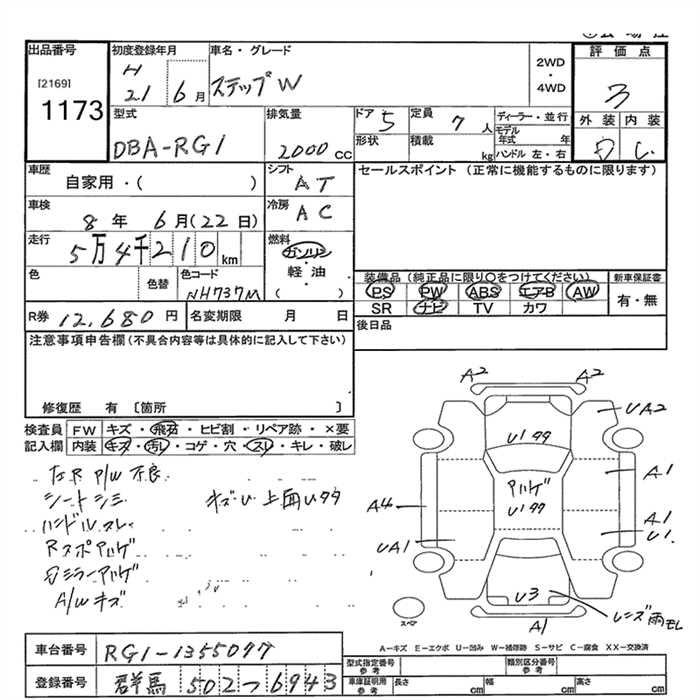 出品番号
[2169]
1173
初度登録年月
H
21 6月
車名・グレード
ステップW
2WD
・
4WD
評価点
3
外装 内装
D C
型式
DBA-RG1
排気量
2000cc
ドア 5
形状
定員 7人
積載 kg
ディーラー・並行
モデル年式 年
ハンドル 左・右
車歴
自家用・( )
シフト
AT
セールスポイント (正常に機能するものに限ります)
車検
8年 6月(22日)
冷房
AC
走行
5万4千210km
燃料
ガソリン
・
軽油
・
( )
色
色替
色コード
NH737M
装備品(純正品に限り○をつけてください)
PS PW ABS エアB AW
SR ナビ TV カワ
新車保証書
有・無
R券 12,680円
名変期限 月 日
後日品
注意事項申告欄(不具合内容等は具体的に記入して下さい)
修復歴 有 〔箇所 〕
検査員記入欄
FW キズ・飛石・ヒビ割・リペア跡・×要
内装 キズ・汚レ・コゲ・穴・スレ・キレ・破レ
左R P/W 不良
シートシミ
ハンドルスレ
Rスポアハゲ
Dミラーアハゲ
A/Wキズ
キズU 上面Uタタ
A2 A2
UA2
U1タタ
A1
アハゲ
U1タタ
A4
A1
U1
UA1
U3
レンズ雨モレ
A1
スペア
A－キズ E－エクボ U－凹み W－補修跡 S－サビ C－腐食 XX－交換済
車台番号 RG1-1355097
登録番号 群馬 502-6943
型式指定番号 参考
類別区分番号 参考
車庫証明用 参考
長さ cm 幅 cm 高さ cm